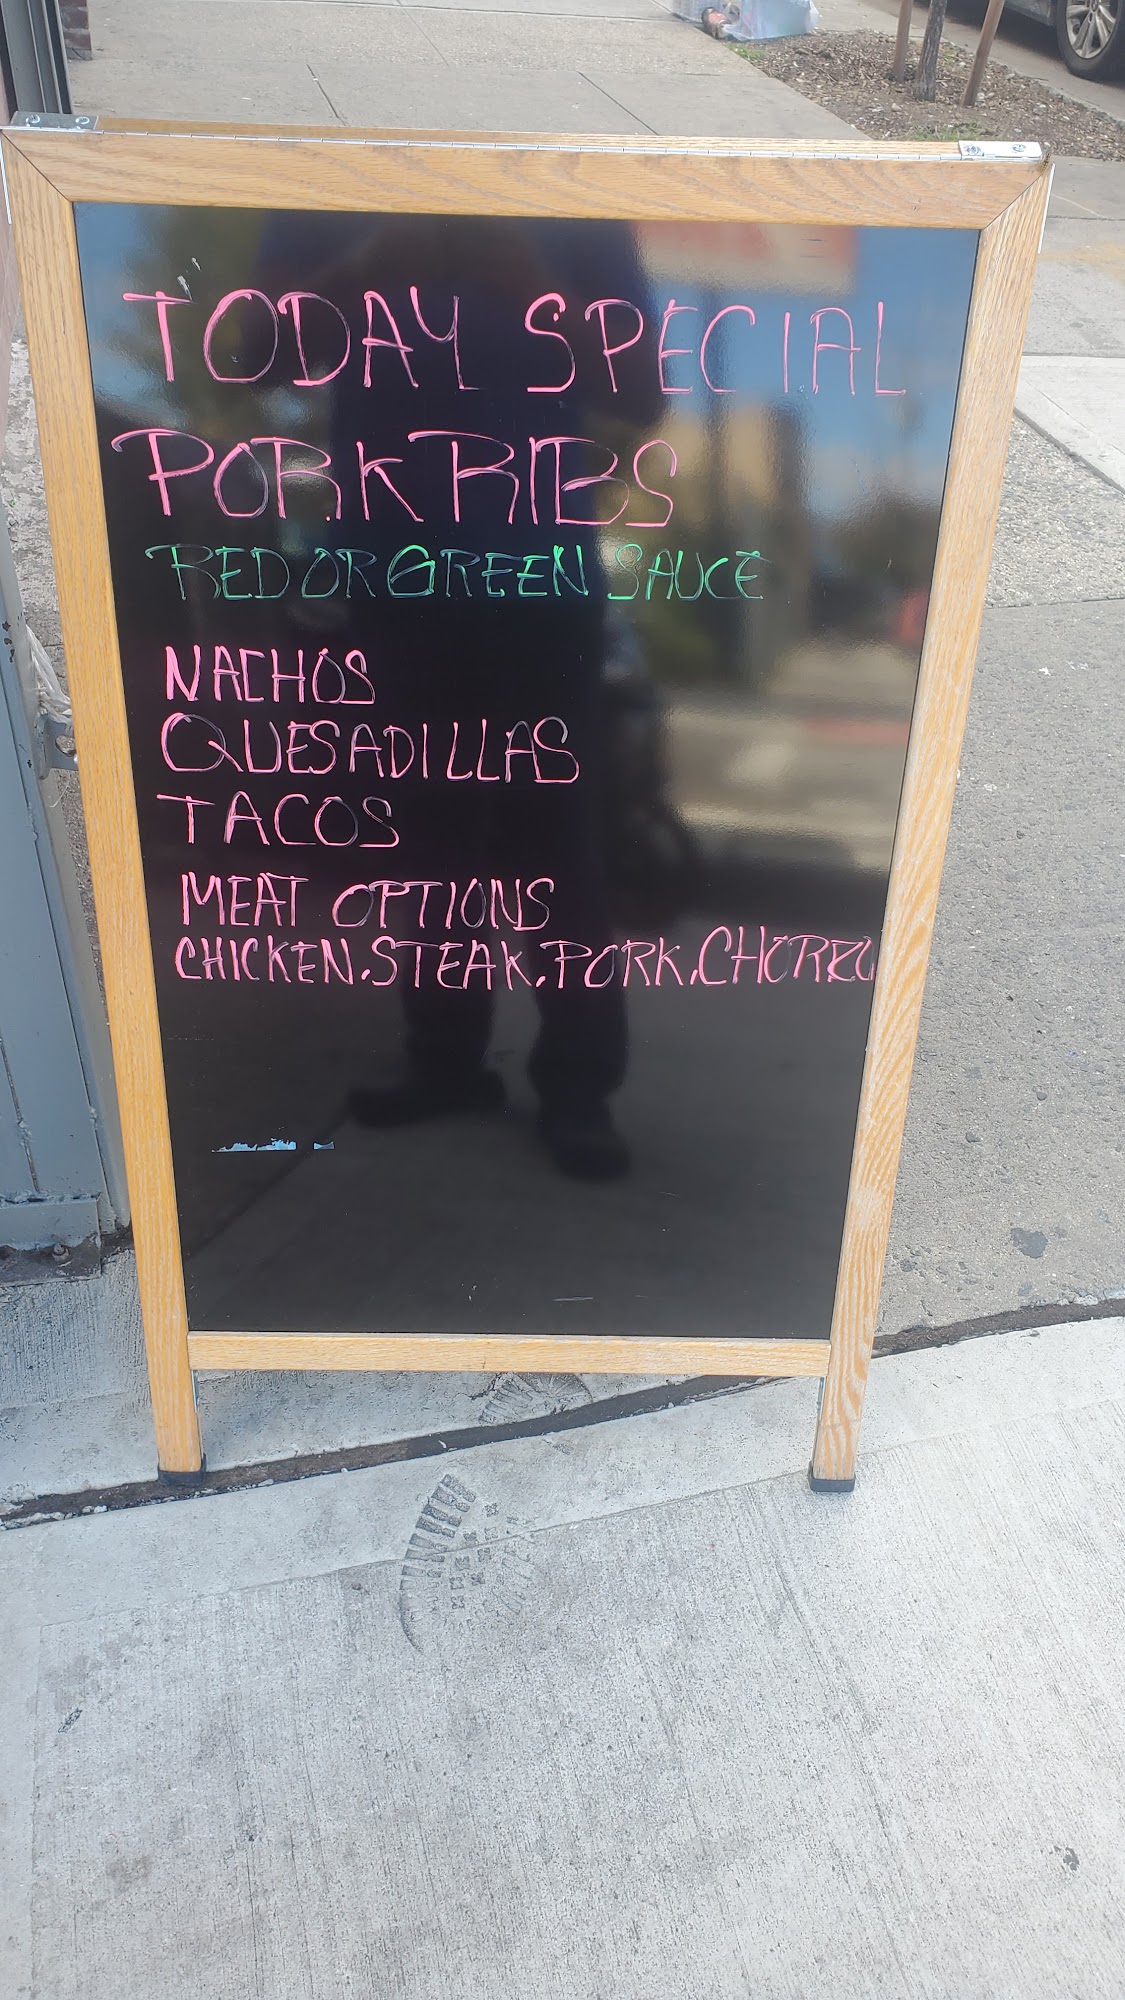 TODAY SPECIAL
PORK RIBS
RED OR GREEN SAUCE
NACHOS
QUESADILLAS
TACOS
MEAT OPTIONS
CHICKEN.STEAK.PORK.